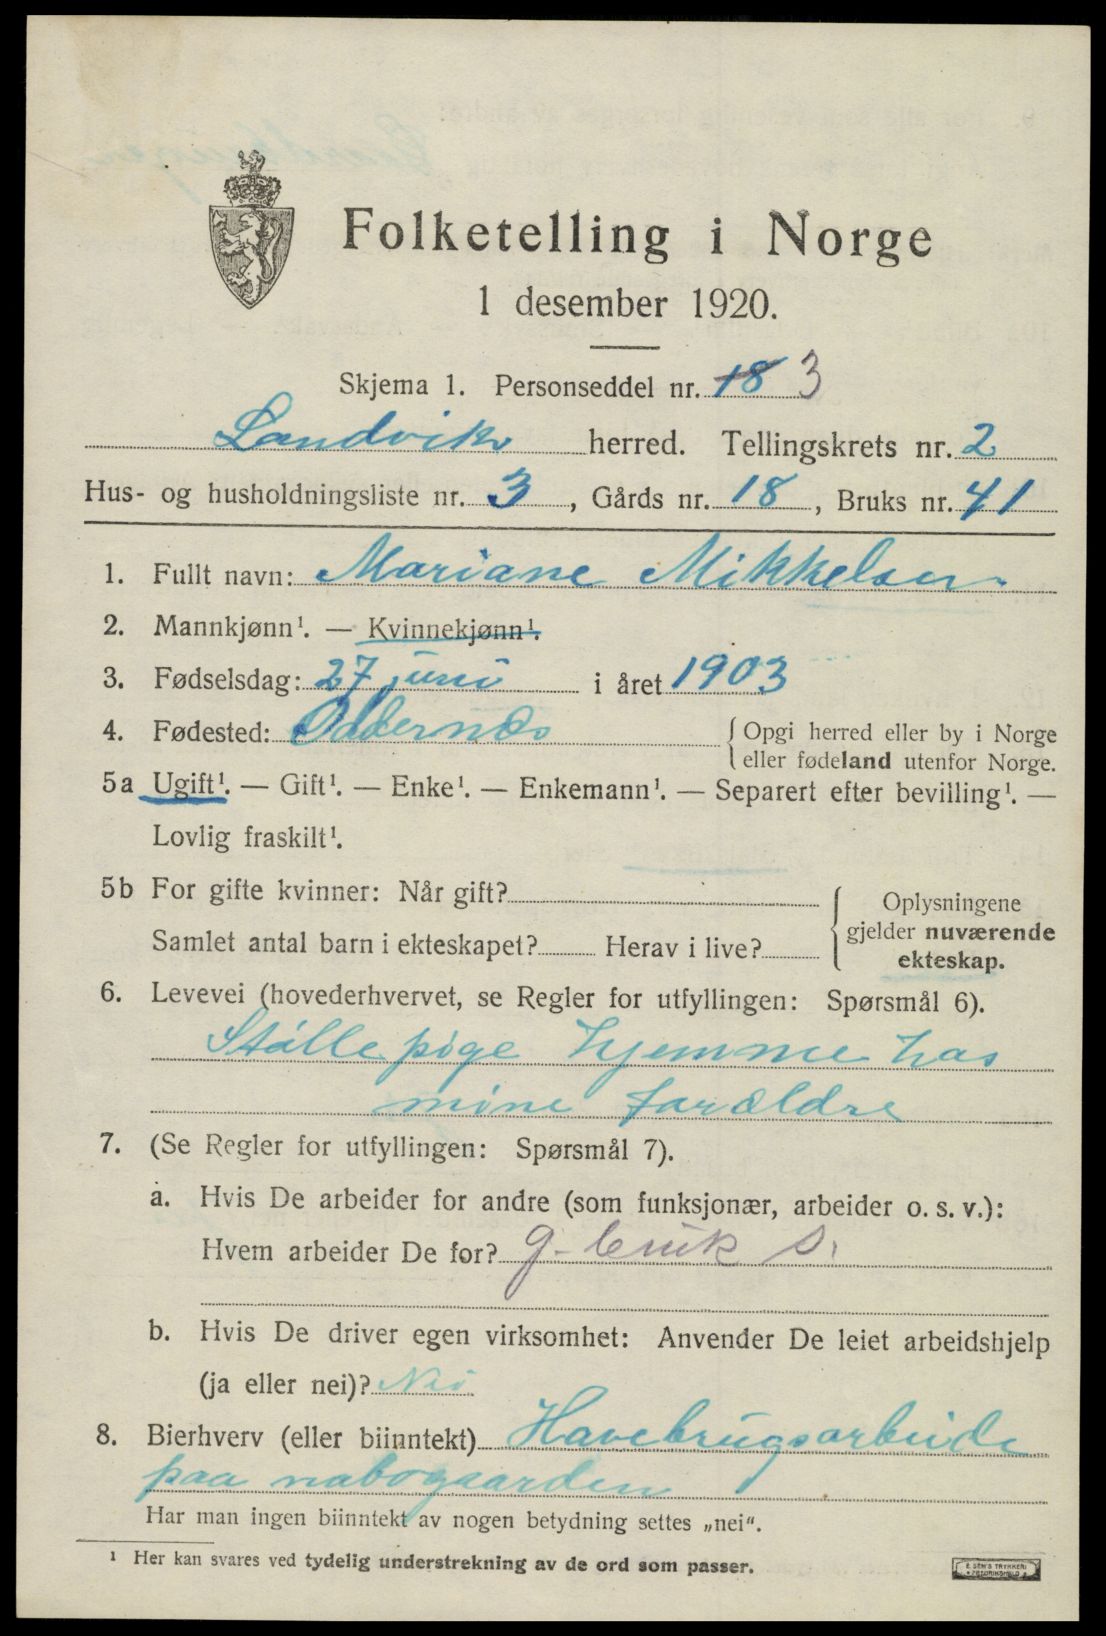 Folketelling i Norge
1 desember 1920.
Skjema 1. Personseddel nr. 18 3
Landvik herred. Tellingskrets nr. 2
Hus- og husholdningsliste nr. 3, Gårds nr. 18, Bruks nr. 41
1. Fullt navn: Mariane Mikkelsen
2. Mannkjønn¹. — Kvinnekjønn¹.
3. Fødselsdag: 27 juni i året 1903
4. Fødested: Oddernes { Opgi herred eller by i Norge
eller fødeland utenfor Norge.
5a Ugift¹. — Gift¹. — Enke¹. — Enkemann¹. — Separert efter bevilling¹. —
Lovlig fraskilt¹.
5b For gifte kvinner: Når gift?
Samlet antal barn i ekteskapet? Herav i live?
{ Oplysningene
gjelder nuværende
ekteskap.
6. Levevei (hovederhvervet, se Regler for utfyllingen: Spørsmål 6).
Stålle pige hjemme hos
mine forældre
7. (Se Regler for utfyllingen: Spørsmål 7).
a. Hvis De arbeider for andre (som funksjonær, arbeider o. s. v.):
Hvem arbeider De for?
b. Hvis De driver egen virksomhet: Anvender De leiet arbeidshjelp
(ja eller nei)? Nei
8. Bierhverv (eller biinntekt) Havebrugsarbeide
paa nabogaarden
Har man ingen biinntekt av nogen betydning settes „nei".
¹ Her kan svares ved tydelig understrekning av de ord som passer.